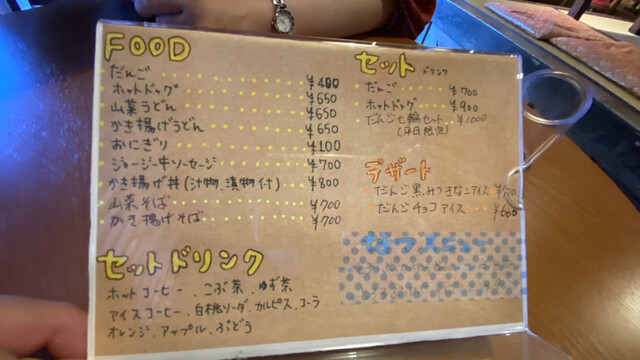 FOOD
だんご ¥400
ホットドッグ ¥650
山菜うどん ¥650
かき揚げうどん ¥650
おにぎり ¥100
ジョージ牛ソーセージ ¥700
かき揚げ丼(汁物、漬物付) ¥800
山菜そば ¥700
かき揚げそば ¥700
セットドリンク
ホットコーヒー、こぶ茶、ゆず茶
アイスコーヒー、白桃ソーダ、カルピス、コーラ
オレンジ、アップル、ぶどう
セット ドリンク
だんご ¥700
ホットドッグ ¥900
だんご七輪セット ¥1000
(平日限定)
デザート
だんご黒みつきなこアイス
だんごチョコアイス ¥600
なつメニュー